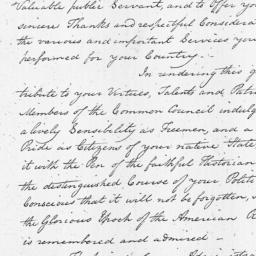 Valuable public Servant, and to Offer you
sincere Thanks and respectful Considera
the various and important Services you
performed for your Country.
In rendering this
tribute to your Virtues, Talents and Patri
Members of the Common Council indulg
a lively Sensibility as Freemen, and a
Pride as Citizens of your native State
it with the Pen of the faithful Historian
the distinguished Course of your Polit
Conscious that it will not be forgotten,
the Glorious Epoch of the American R
is remembered and admired –